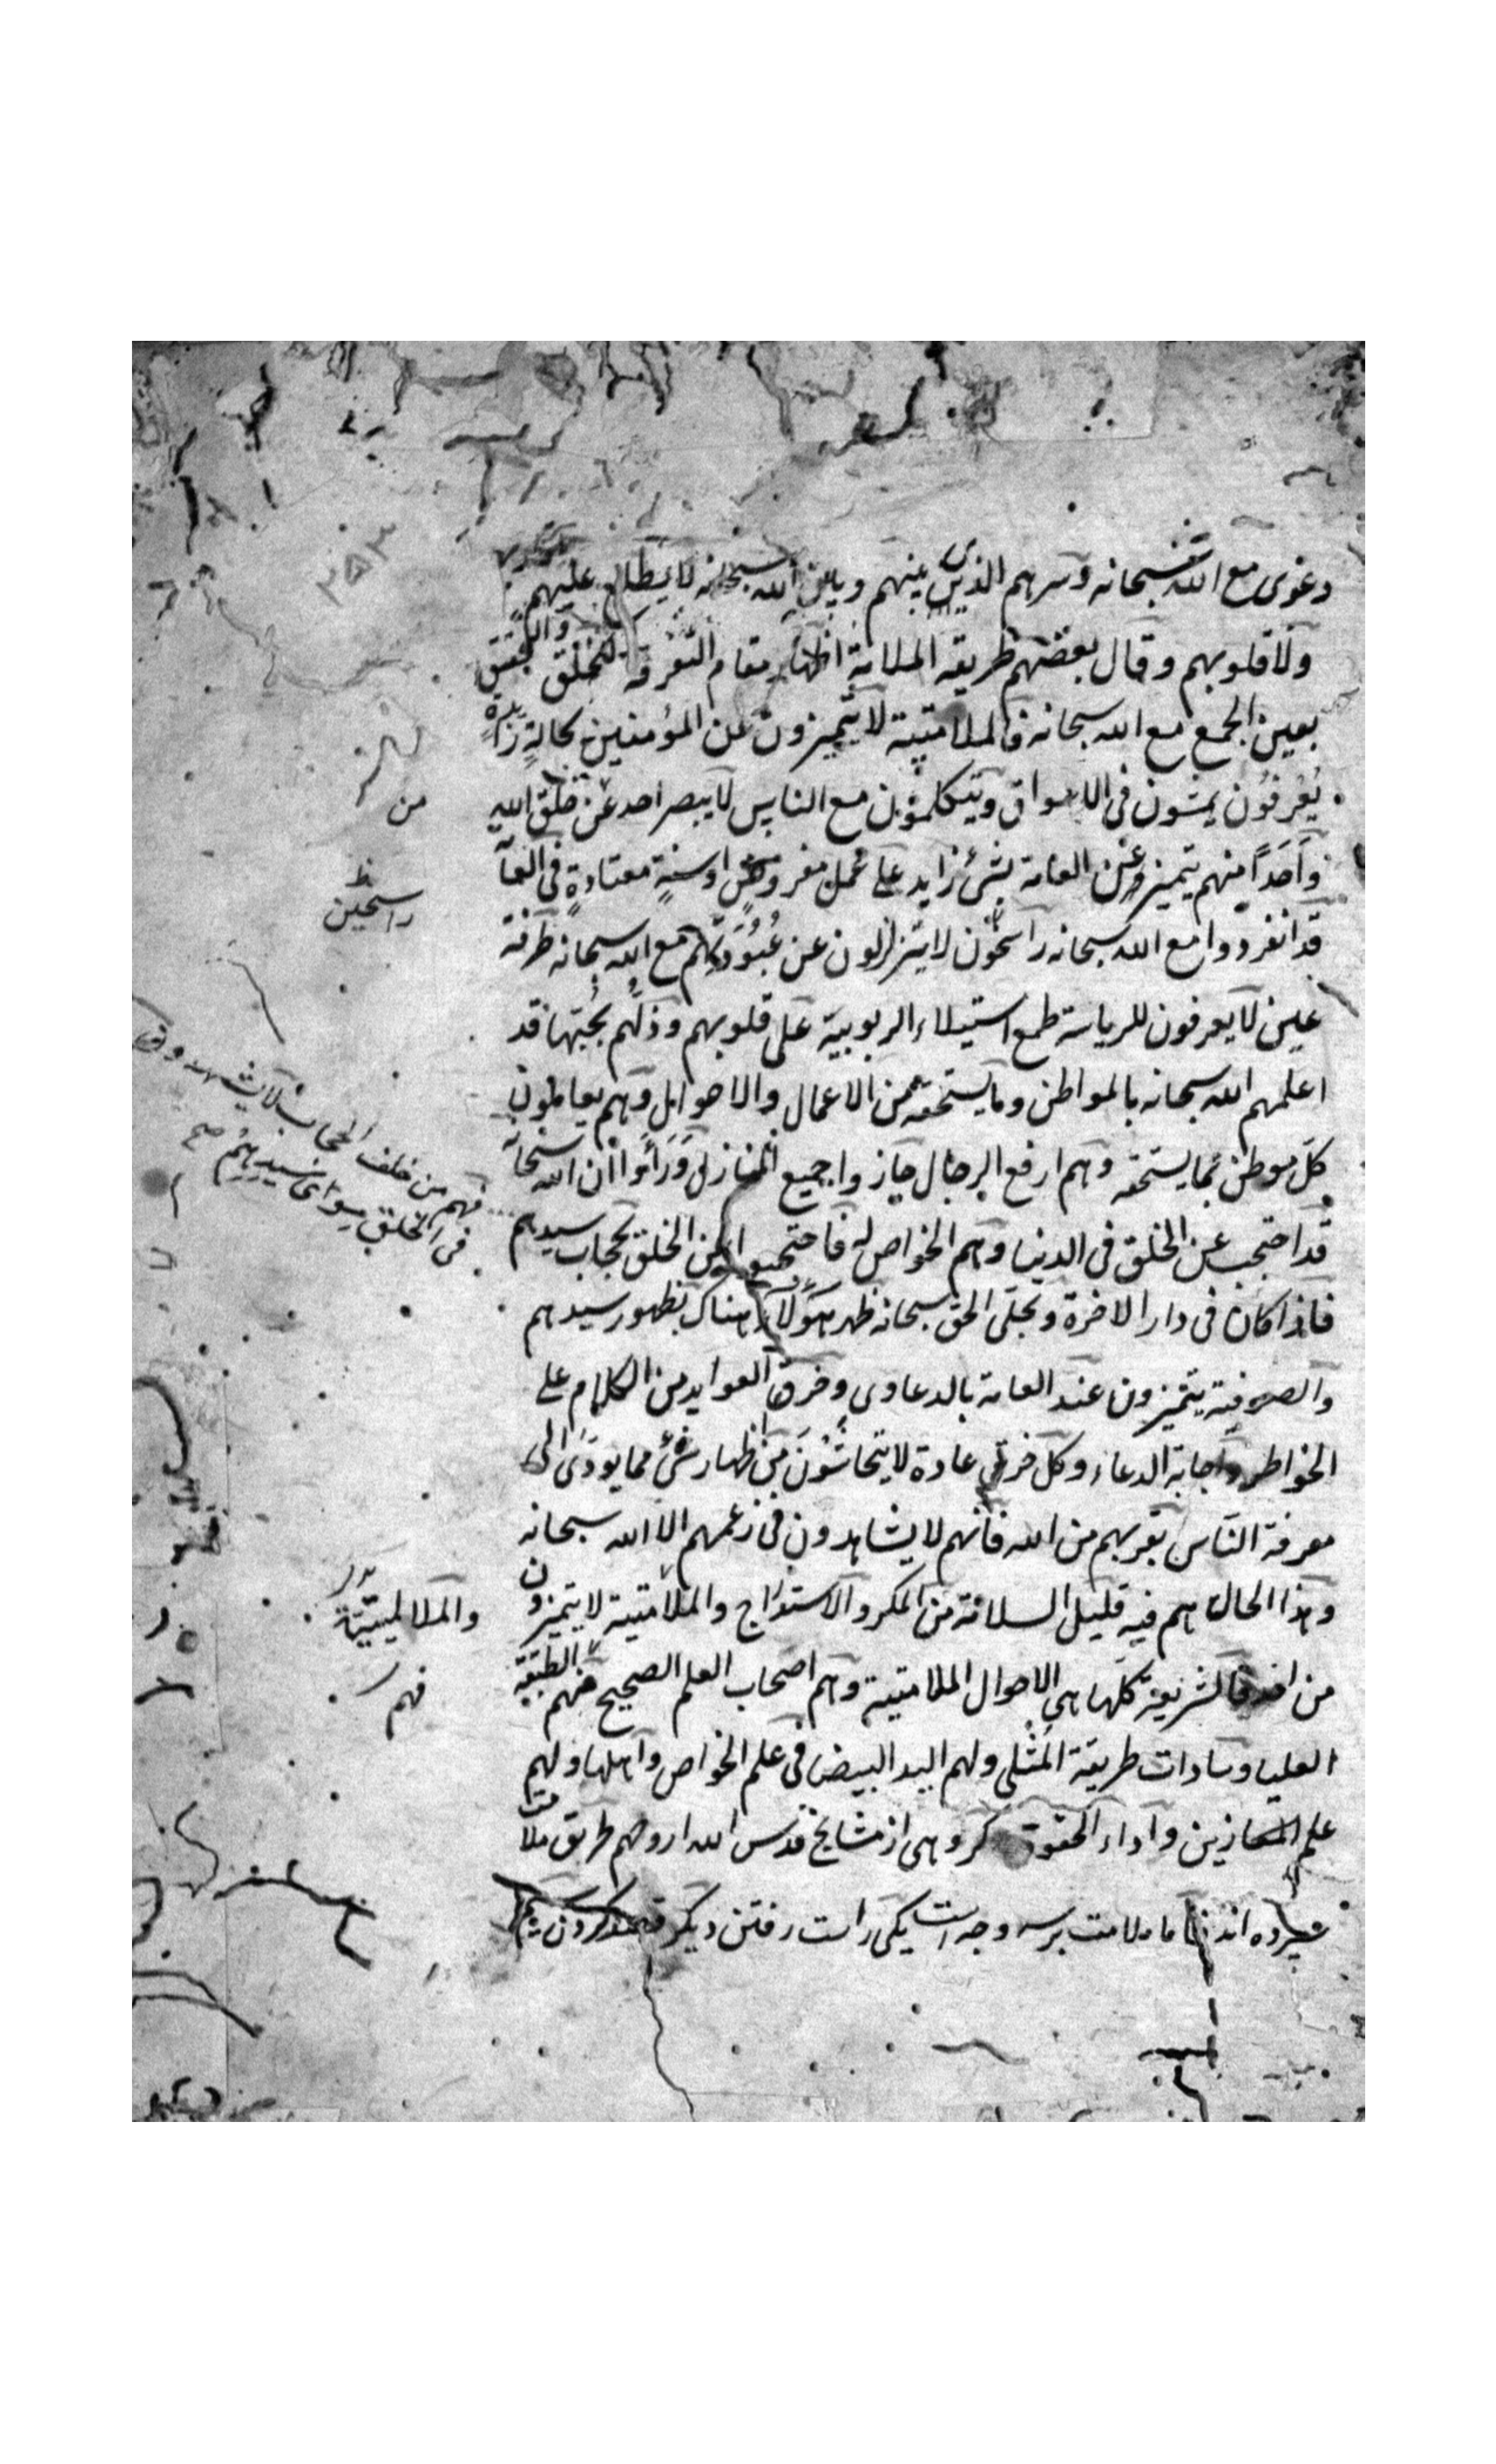 دعوى مع الله سبحانه وسرهم الذى بينهم وبين الله سبحانه لا يطلع عليهم
ولا قلوبهم وقال بعضهم طريقة الملامة اظهار مقام التفرقة للخلق والتحقق
بعين الجمع مع الله سبحانه فالملامتية لا يتميزون عن المؤمنين بحالة زايدة
يعرفون يمشون فى الاسواق ويتكلمون مع الناس لا يبصر احد عن خلق الله
واحدا منهم يتميز عن العامة بشئ زايد على عمل مفروض او سنة معتادة فى العا
قد انفردوا مع الله سبحانه راسخون لا يتزلزلون عن عبوديتهم مع الله سبحانه طرفة
عين لا يعرفون للرياسة طمع استيلاء الربوبية على قلوبهم وذلهم بحبها قد
اعلمهم الله سبحانه بالمواطن وما يستحقه من الاعمال والاحوال وهم يعاملون
كل موطن بما يستحقه وهم ارفع الرجال حازوا جميع المنازل ورأوا ان الله سبحا
قد احتجب عن الخلق فى الدنيا وهم الخواص له فاحتجبوا عن الخلق بحجاب سيدهم
فاذا كان فى دار الاخرة وتجلى الحق سبحانه ظهر هؤلاء هناك بظهور سيدهم
والصوفية يتميزون عند العامة بالدعاوى وخرق العوايد من الكلام على
الخواطر واجابة الدعاء وكل خرق عادة لا يتحاشون من اظهار شئ مما يودى الى
معرفة الناس بقربهم من الله فانهم لا يشاهدون فى زعمهم الا الله سبحانه
وهذا الحال هم فيه قليل السلامة من المكر والاستدراج والملامتية لا يتميزون
من احد فالشريعة كلها هى الاحوال الملامتية وهم اصحاب العلم الصحيح منهم الطبقة
العليا وسادات طريقة المثلى ولهم اليد البيضا فى علم الخواص واهلها ولهم
علم الموازين واداء الحقوق كروهى از مشايخ قدس الله ارواحهم طريق ملامت
سپرده اند اما ملامت بر سه وجه است يكى راست رفتن ديكر قصد كردن
من
راسخين
فهم من خلف الحجاب لا يشهدون
فى الخلق سواى سيدهم صح
والملامتية
فهم